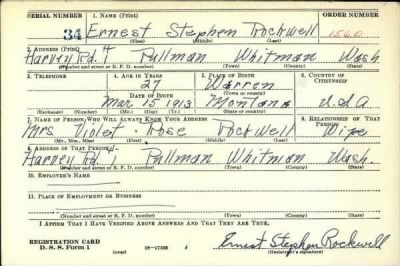 SERIAL NUMBER 1. NAME (Print) ORDER NUMBER
34 Ernest Stephen Rockwell
(First) (Middle) (Last)
2. ADDRESS (Print)
Harvey Rd. Pullman Whitman Wash
(Number and street or R. F. D. number) (Town) (County) (State)
3. TELEPHONE 4. AGE IN YEARS 5. PLACE OF BIRTH 6. COUNTRY OF CITIZENSHIP
27 Warren
DATE OF BIRTH (Town or county)
Mar 15 1913 Montana U.S.A
(Exchange) (Number) (Mo.) (Day) (Yr.) (State or country)
7. NAME OF PERSON WHO WILL ALWAYS KNOW YOUR ADDRESS 8. RELATIONSHIP OF THAT PERSON
Mrs Violet Rose Rockwell Wife
(Mr., Mrs., Miss) (First) (Middle) (Last)
9. ADDRESS OF THAT PERSON
Harvey Rd. Pullman Whitman Wash.
(Number and street or R. F. D. number) (Town) (County) (State)
10. EMPLOYER'S NAME
11. PLACE OF EMPLOYMENT OR BUSINESS
(Number and street or R. F. D. number) (Town) (County) (State)
I AFFIRM THAT I HAVE VERIFIED ABOVE ANSWERS AND THAT THEY ARE TRUE.
REGISTRATION CARD
D. S. S. Form 1 (over) Ernest Stephen Rockwell
(Registrant's signature)